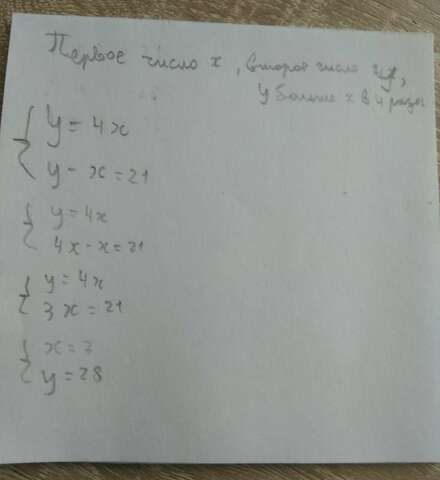 Первое число x, второе число y,
y больше x в 4 раза
y = 4x
y - x = 21
y = 4x
4x - x = 21
y = 4x
3x = 21
y = 28